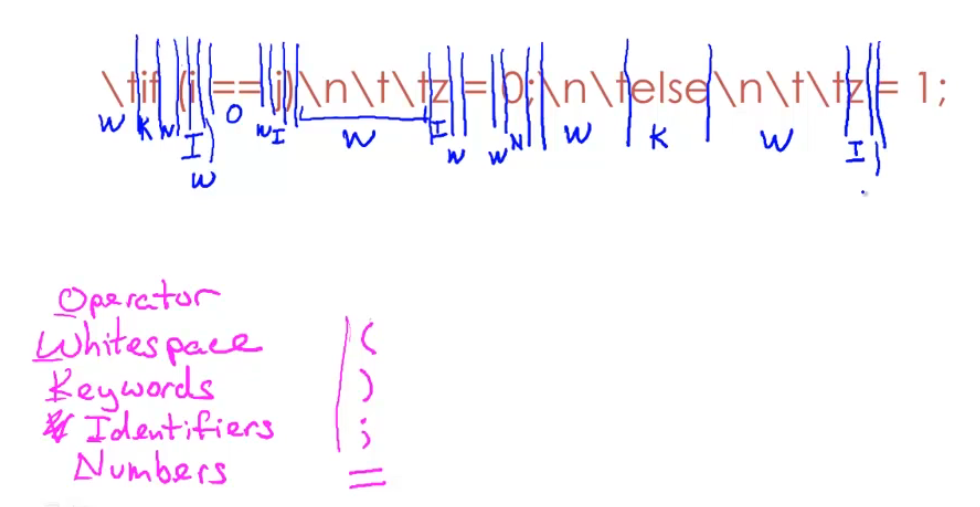 \tif (i == j)\n\t\tz = 0;\n\telse\n\t\tz = 1;
W K W I W O W I W I W W N W K W I
Operator
Whitespace (
Keywords )
Identifiers ;
Numbers =